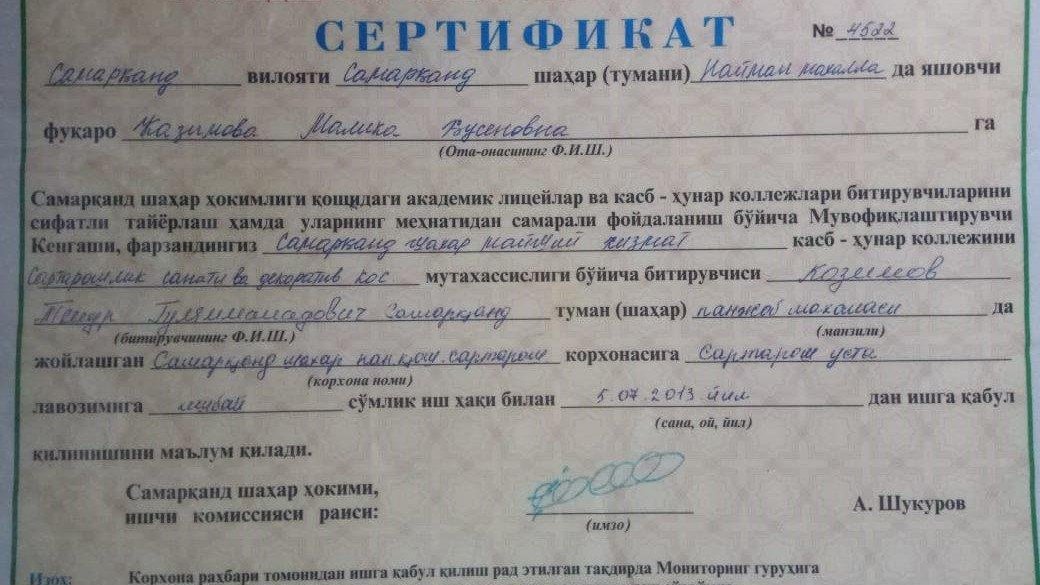 СЕРТИФИКАТ № 4522
Самарқанд вилояти Самарқанд шаҳар (тумани) Найман махалла да яшовчи
фуқаро Казимова Малика га
(Ота-онасининг Ф.И.Ш.)
Самарқанд шаҳар ҳокимлиги қошидаги академик лицейлар ва касб - ҳунар коллежлари битирувчиларини
сифатли тайёрлаш ҳамда уларнинг меҳнатидан самарали фойдаланиш бўйича Мувофиқлаштирувчи
Кенгаши, фарзандингиз Самарканд шахар маиший хизмат касб - ҳунар коллежини
Сартарошлик санати ва декоратив кос мутахассислиги бўйича битирувчиси Козимов
Темур Самарқанд туман (шаҳар) панжоб махаласи да
(битирувчининг Ф.И.Ш.) (манзили)
жойлашган Самарқонд шахар сартарош корхонасига Сартарош усты
(корхона номи)
лавозимига сўмлик иш ҳақи билан 5.07.2013 йил дан ишга қабул
(сана, ой, йил)
қилинишини маълум қилади.
Самарқанд шаҳар ҳокими,
ишчи комиссияси раиси: А. Шукуров
(имзо)
Изоҳ: Корхона раҳбари томонидан ишга қабул қилиш рад этилган тақдирда Мониторинг гуруҳига